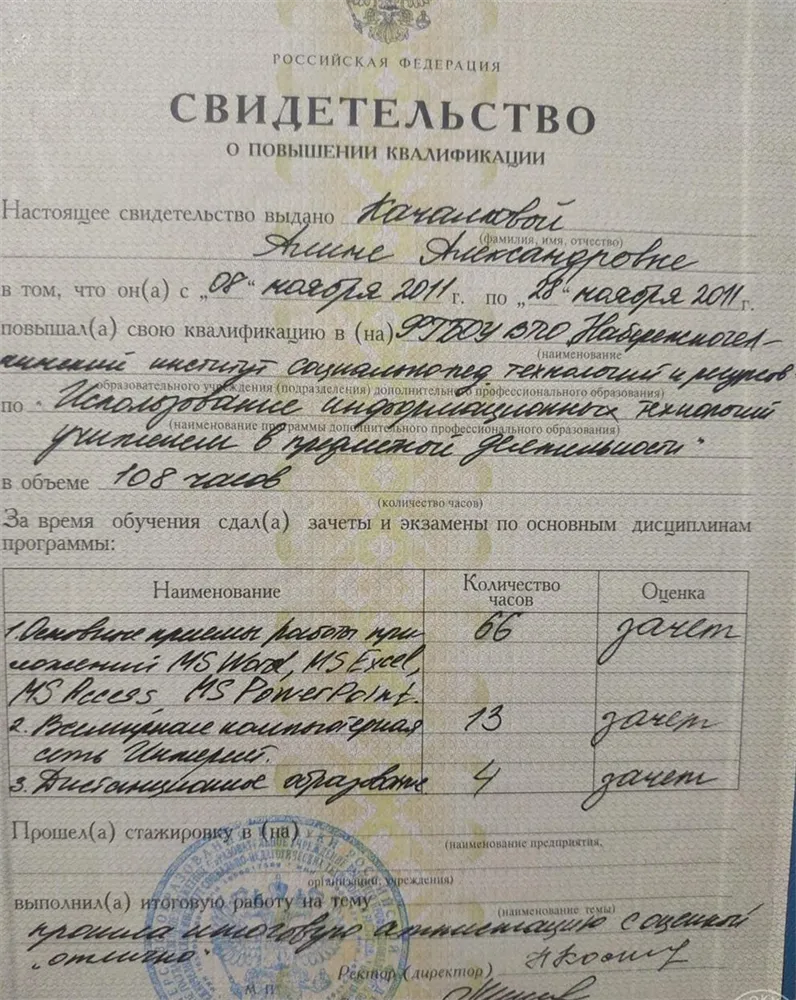 РОССИЙСКАЯ ФЕДЕРАЦИЯ
СВИДЕТЕЛЬСТВО
О ПОВЫШЕНИИ КВАЛИФИКАЦИИ
Настоящее свидетельство выдано
(фамилия, имя, отчество)
Алине Александровне
в том, что он(а) с „08“ ноября 2011 г. по „28“ ноября 2011 г.
повышал(а) свою квалификацию в (на) ФГБОУ ВПО Набережночел-
(наименование
нинский институт социально-пед технологий и ресурсов
образовательного учреждения (подразделения) дополнительного профессионального образования)
по "Использование информационных технологий
(наименование программы дополнительного профессионального образования)
учителем в предметной деятельности"
в объеме 108 часов
(количество часов)
За время обучения сдал(а) зачеты и экзамены по основным дисциплинам
программы:
Наименование Количество часов Оценка
1. Основные приемы работы при- 66 зачет
ложений MS Word, MS Excel,
MS Access, MS PowerPoint.
2. Всемирная компьютерная 13 зачет
сеть Интернет.
3. Дистанционное образование 4 зачет
Прошел(а) стажировку в (на)
(наименование предприятия,
организации, учреждения)
выполнил(а) итоговую работу на тему
(наименование темы)
прошла итоговую аттестацию с оценкой
„отлично“
Ректор (директор)
М. П.